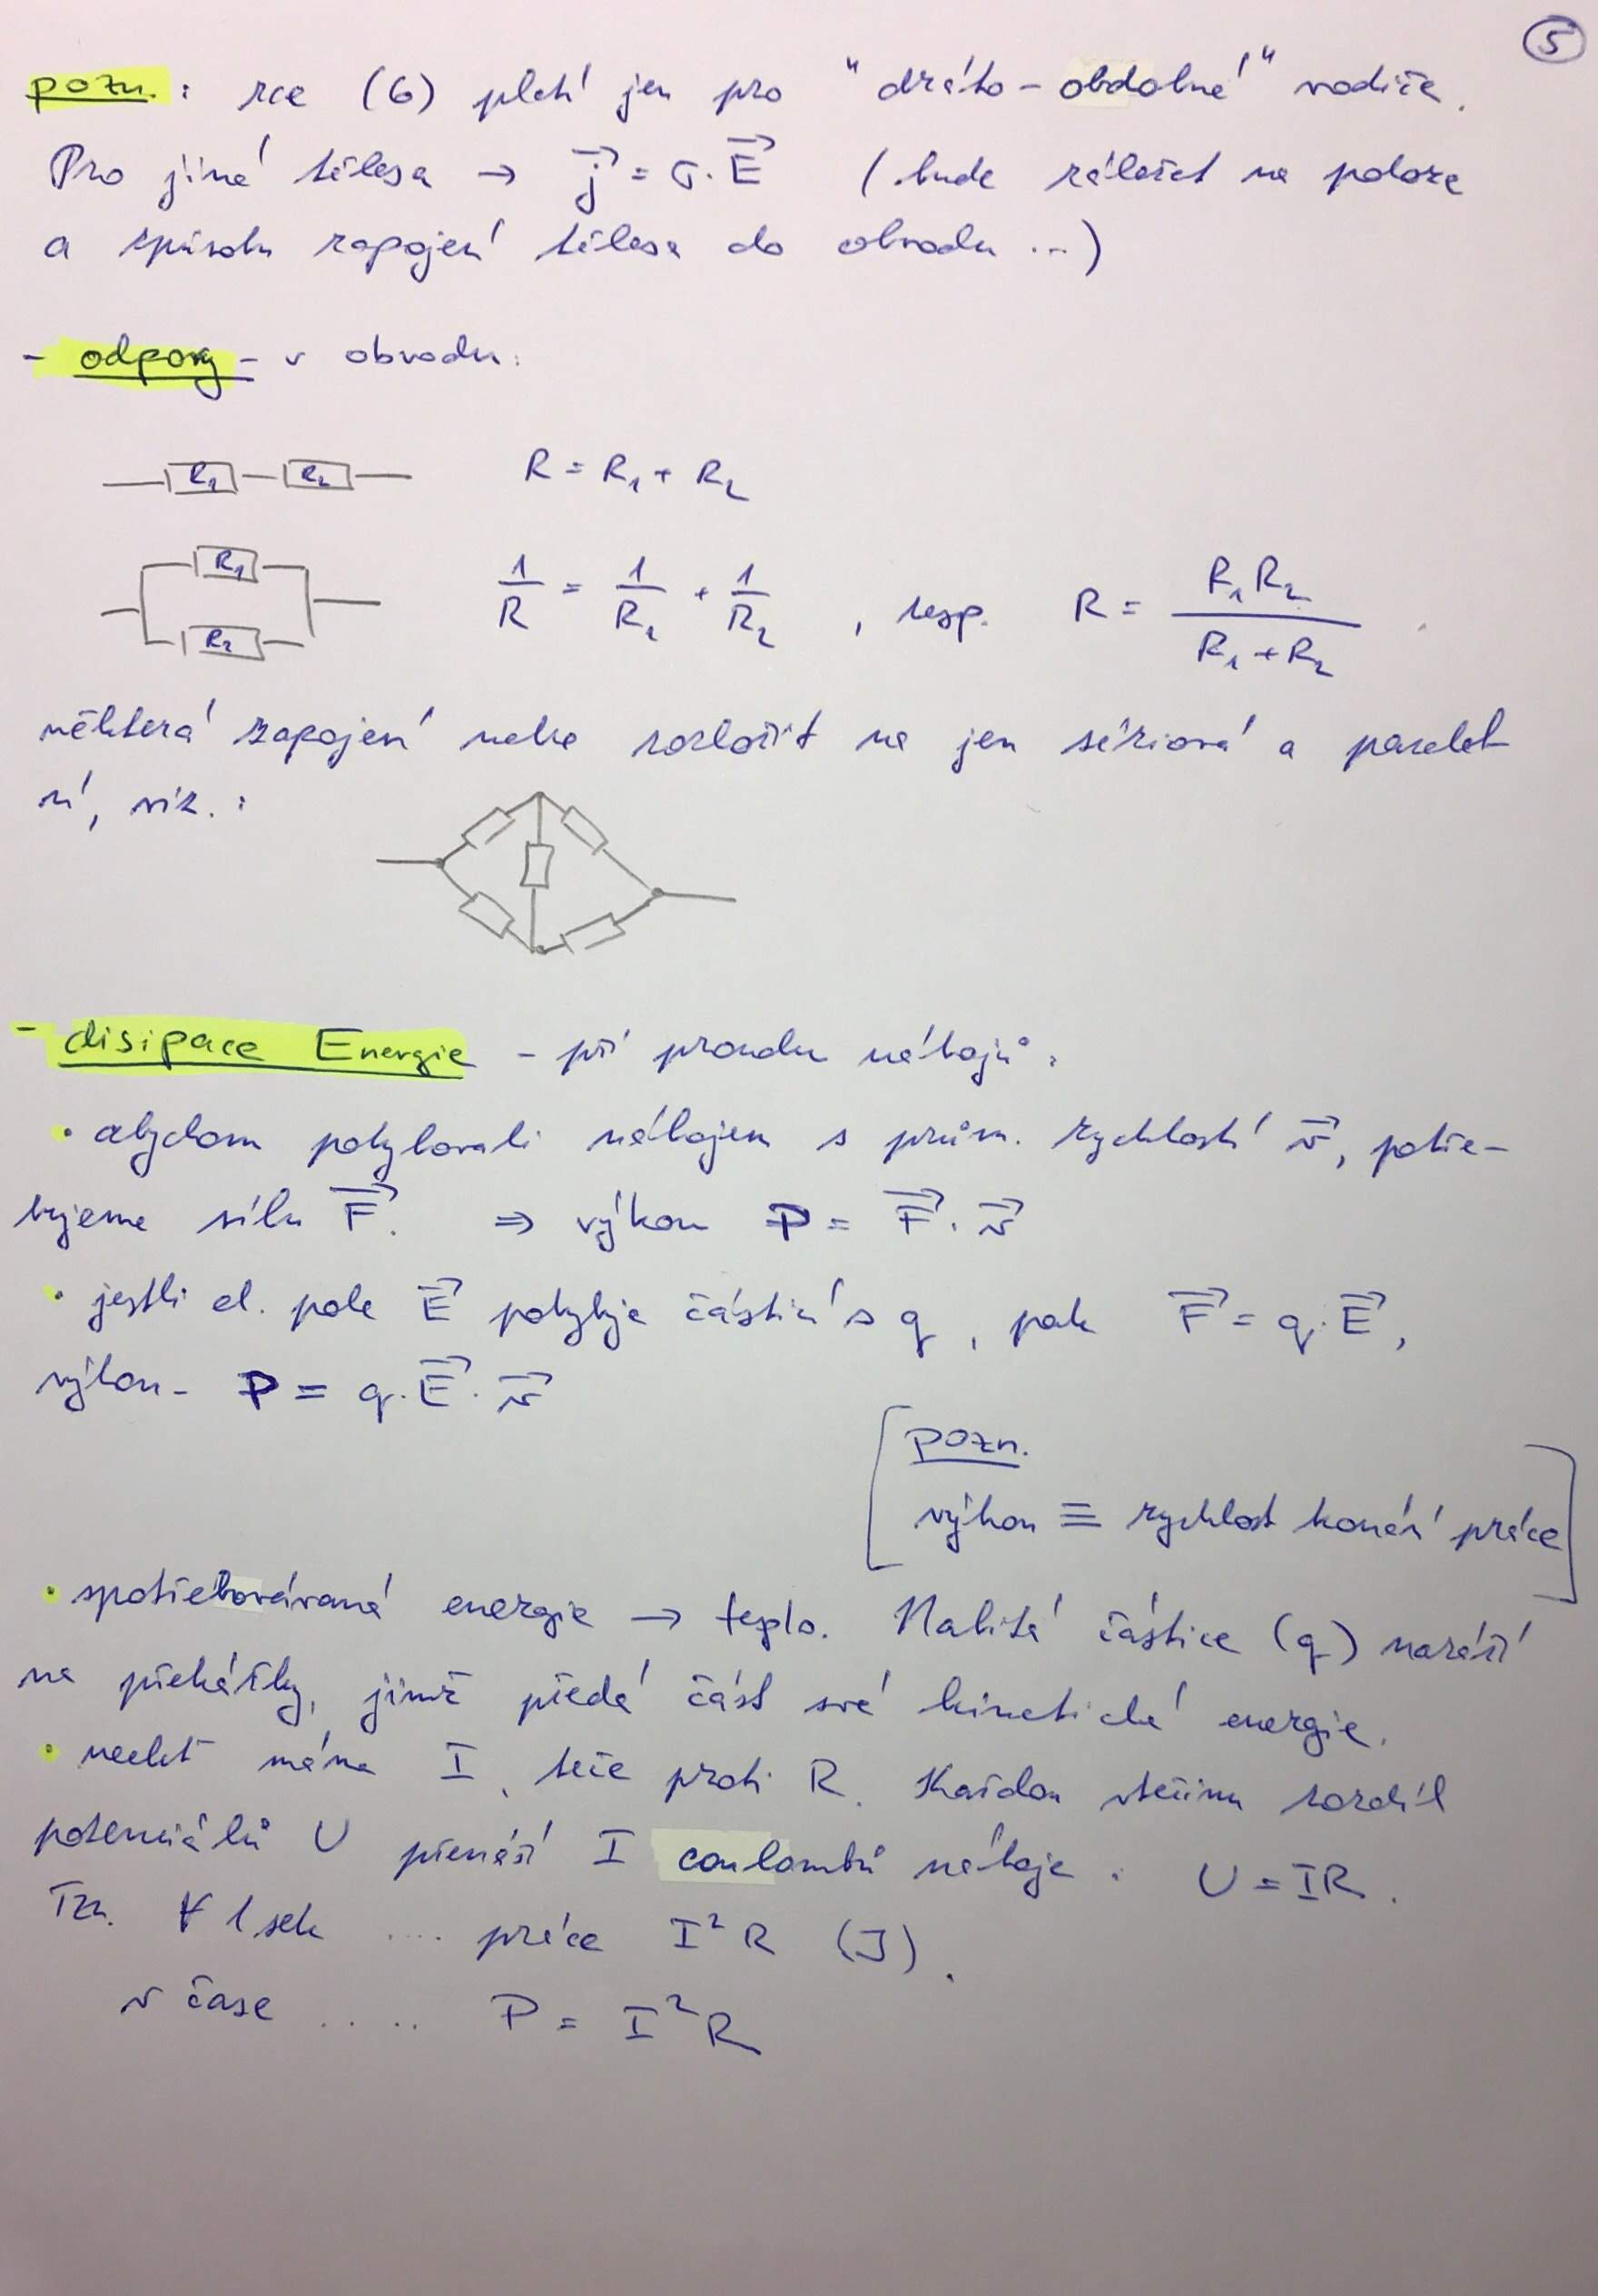 5
pozn. : rce (6) platí jen pro "dráto-obdobné" vodiče.
Pro jiná tělesa → j⃗ = σ·E⃗ (bude záležet na poloze
a způsobu zapojení tělesa do obvodu ...)
- odpory - v obvodu:
R₁ R₂ R = R₁ + R₂
R₁
R₂ 1/R = 1/R₁ + 1/R₂ , resp. R = R₁R₂/(R₁+R₂)
některá zapojení nelze rozložit na jen sériová a paralel
ní, viz. :
- disipace Energie - při proudu nábojů:
• abychom pohybovali nábojem s prům. rychlostí v⃗, potře-
bujeme sílu F⃗. ⇒ výkon P = F⃗·v⃗
• jestli el. pole E⃗ pohybuje částicí s q, pak F⃗ = q·E⃗,
výkon - P = q·E⃗·v⃗
pozn.
výkon ≡ rychlost konání práce
• spotřebovávaná energie → teplo. Nabitá částice (q) naráží
na překážky, jimž předá část své kinetické energie.
• nechť máme I, teče proti R. Každou vteřinu rozdíl
potenciálů U přenáší I coulombů náboje. U = IR.
Tzn. ∀ 1 sek .... práce I²R (J).
v čase ..... P = I²R